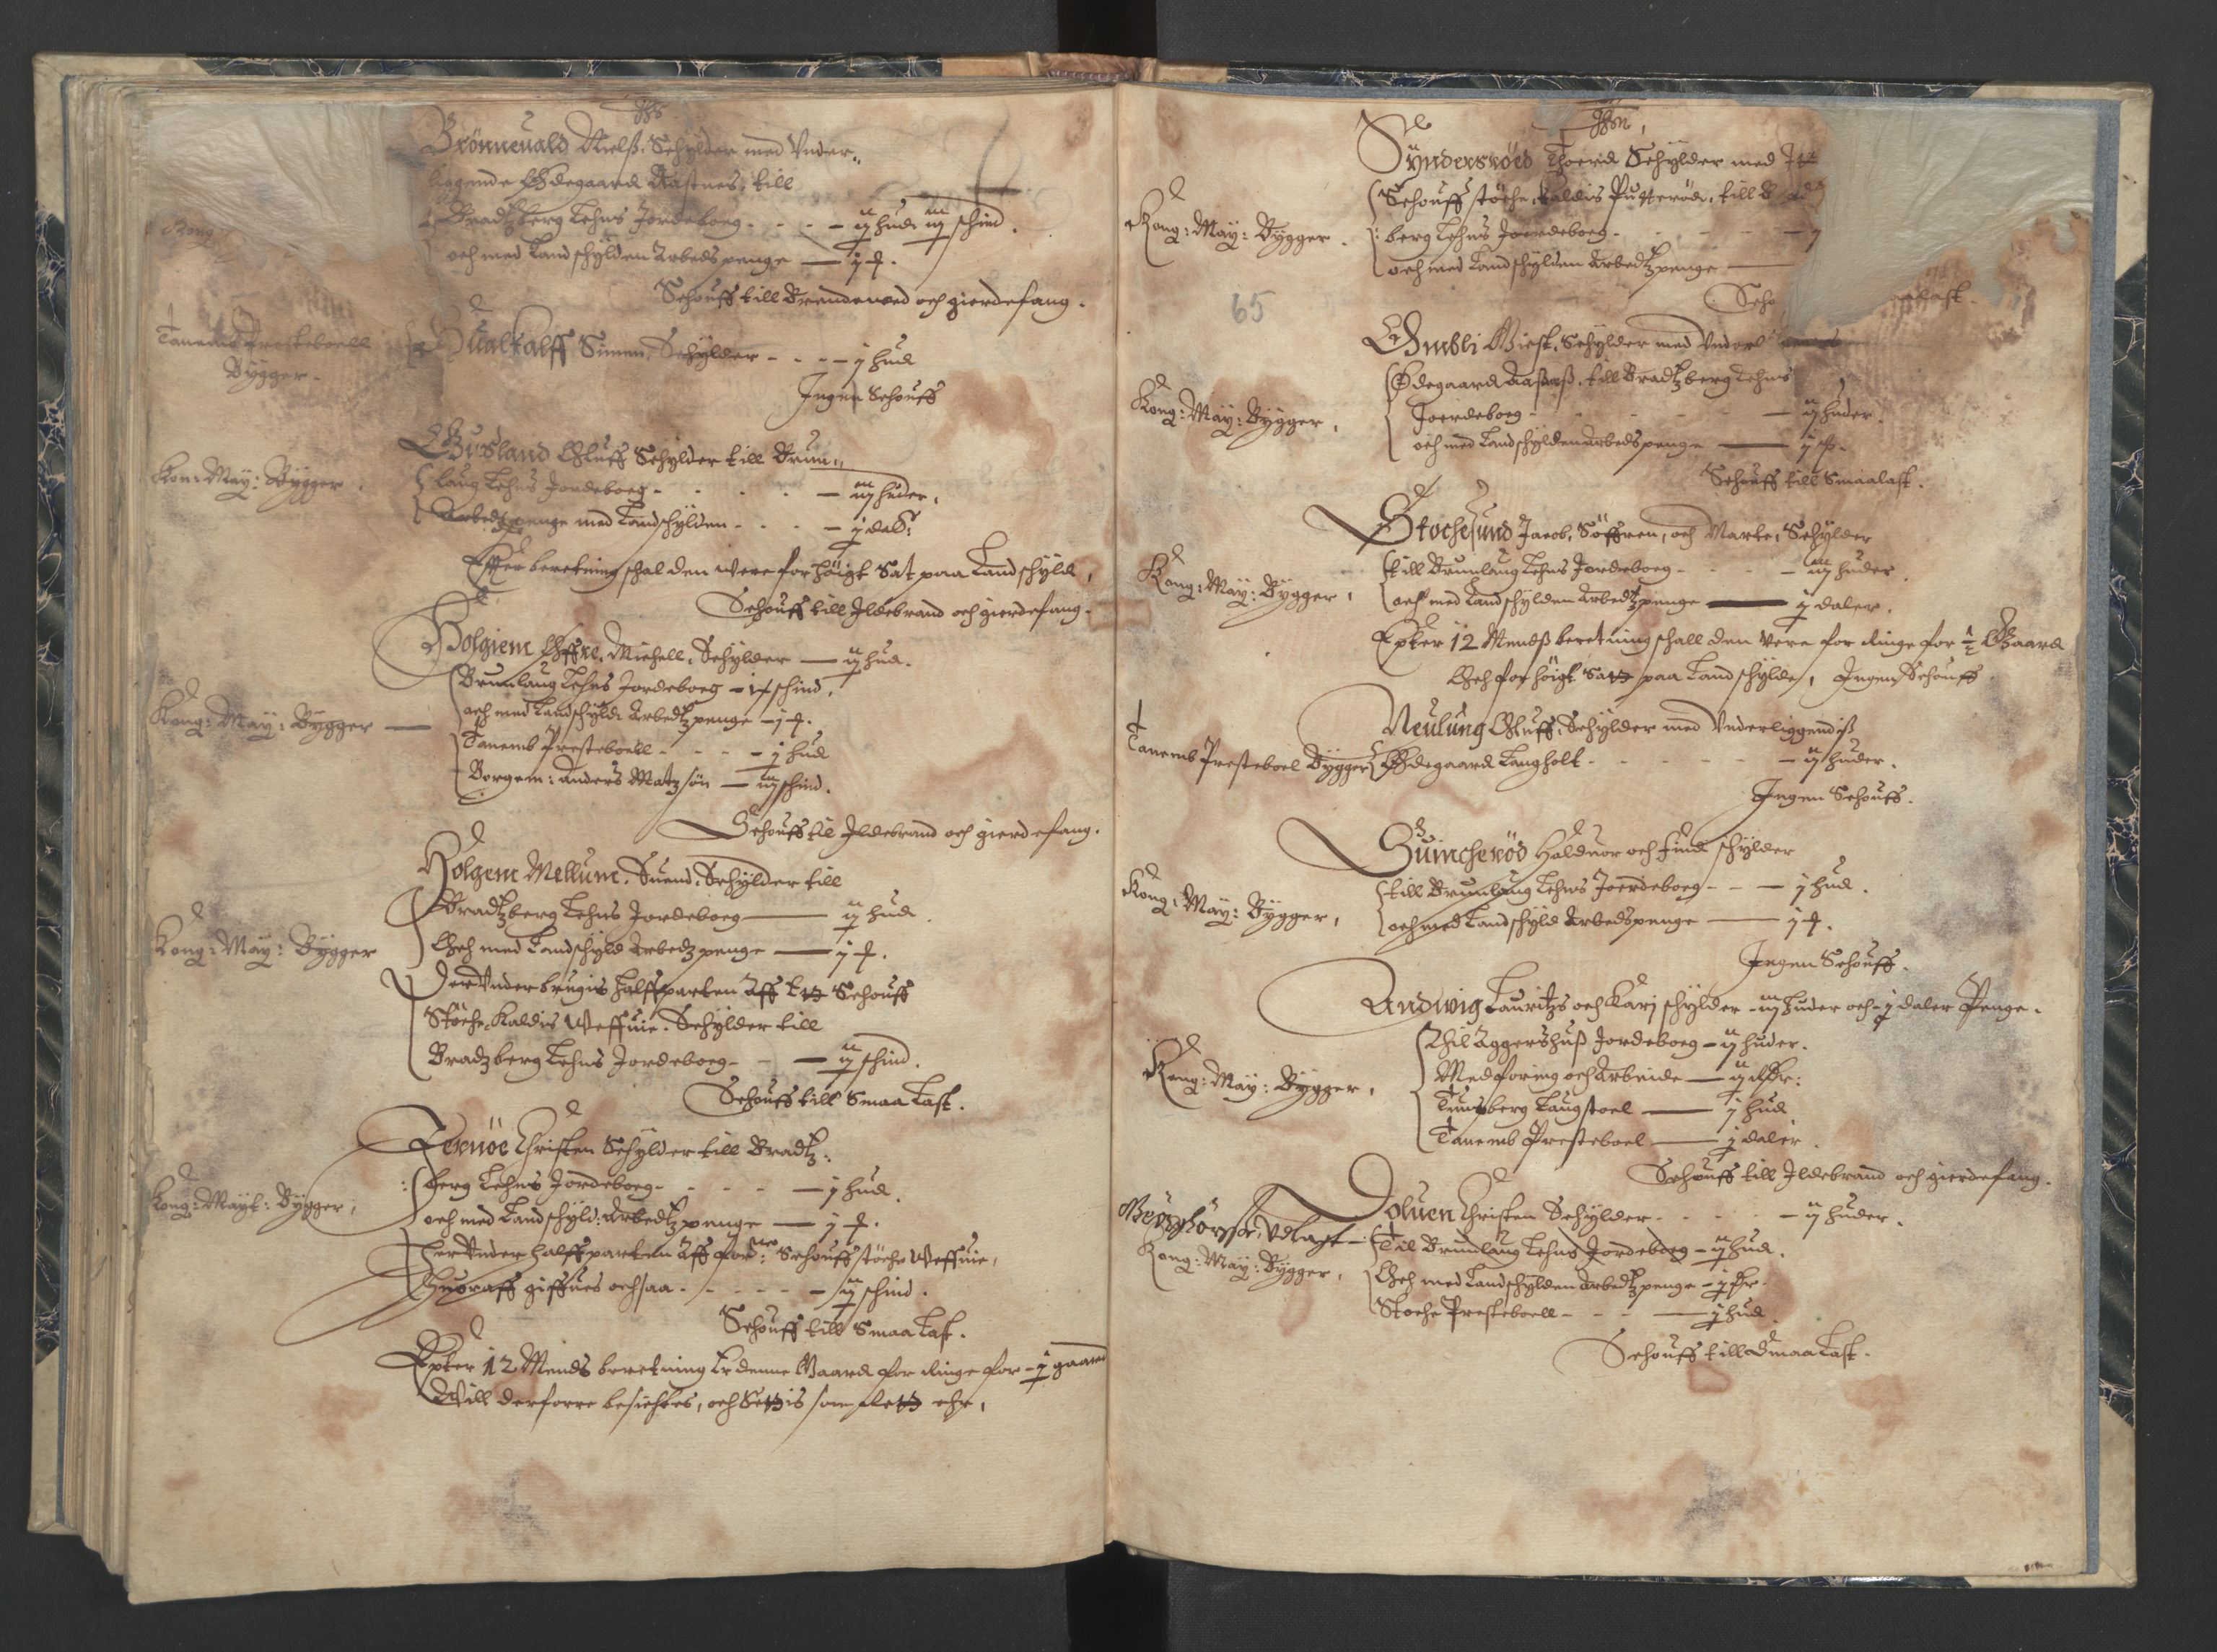 Brönneuald Nielß. Schylder med Vnder„
liggende Ødegaard Aastnes, till
Bradtzberg Lehns Jordeboeg - - - - ij hud iij schind.
och med Landschylden Arbeds penge — j
Schouff till Brendeued och gierdefang.
Kong
Tanemb Presteboell
Bygger.
Hualkalff Simen, Schylder - - - j hud
Ingen Schouff
Kon: May: Bygger.
Gusland Oluff Schylder till Brun„
laug Lehns Jordeboeg - - - - iij huder,
Arbedtzpenge med Landschylden - - - j dal
Effter beretning schal den were for höigt Sat paa Landschyld,
Schouff till Ildebrand och gierdefang.
Kong: May: Bygger —
Holgiem Effre, Michell, Schylder — ij hud.
Brunlaug Lehns Jordeboeg - schind,
och med Landschyld Arbedtzpenge - j
Tanemb Presteboell - - - - j hud
Borgem: Anders Matzsön — iij schind.
Schouff til Ildebrand och gierdefang.
Kong: May: Bygger
Holgem Mellum, Suend, Schylder till
Bradtzberg Lehns Jordeboeg — ij hud.
Och med Landschyld Arbedtz penge — j
Der Vnder brugis halffparten Aff et Schouff
Stöche, Kaldis Weffuie. Schylder till
Bradtzberg Lehns Jordeboeg - - — ij schind.
Schouff till Smaa Last.
Kong: Mayt: Bygger,
Fernöe Christen Schylder till Bradtz:
:berg Lehns Jordeboeg - - - - — j hud.
och med Landschyld: Arbedtz penge — j
Her Vnder halffparten Aff for: Schouff stöche Weffuie,
Huoraff giffues ochsaa - - - - - ij schind.
Schouff till Smaa Last.
Epter 12 Mends beretning Er denne Gaard for Ringe for - j gaard
Will derforre besichtes, och Settis som Rett ehr,
Kong: May: Bygger.
Synderröed Thoerd Schylder med It
Schouff stöche, Kaldis Putteröd, till B
: berg Lehns Joerdeboeg - - - -
och med Landschylden Arbedtz penge —
Scho last.
65
Kong: May: Bygger,
Ombli Giest. Schylder med Vnderl
Ødegaard Aasneß. till Bradtzberg Lehns
Joerdeboeg - - - - - — ij huder
och med Landschylden Arbeds penge — j
Schouff till Smaalast.
Kong: May: Bygger,
Stochesund Jacob, Söffren, och Marte, Schylder
till Brunlaug Lehns Jordeboeg - - - iij huder.
och med Landschylden Arbedtzpenge — j daler.
Epter 12 Mendß beretning schall den vere for Ringe for ½ Gaard
Och for höigt Satt paa Landschylde, Ingen Schouff
Tanemb Presteboel Bygger
Neulung Oluff, Schylder med Vnderliggendiß
Ødegaard Langholt - - - - - ij huder.
Ingen Schouff.
Kong: May: Bygger,
Guincheröd Halduor och Find schylder
till Brunlaug Lehns Joerdeboeg - - — j hud.
och med Landschyld Arbedspenge — j
Ingen Schouff.
Kong: May: Bygger,
Andwig Lauritzs och Karj schylder - iij huder och - j daler Penge.
Thil Aggershuß Jordeboeg - ij huder.
Med foring och Arbeide — ij
Tunsberg Laugstoel — j hud
Tanemb Presteboel — j daler.
Schouff till Ildebrand och gierdefang.
Kong: May: Bygger,
Doluen Christen Schylder - - - - ij huder.
Til Brunlaug Lehns Jordeboeg - hud.
Och med Landschylden Arbedtz penge -
Stoche Presteboell - - - — j hud
Schouff till Smaa Last.